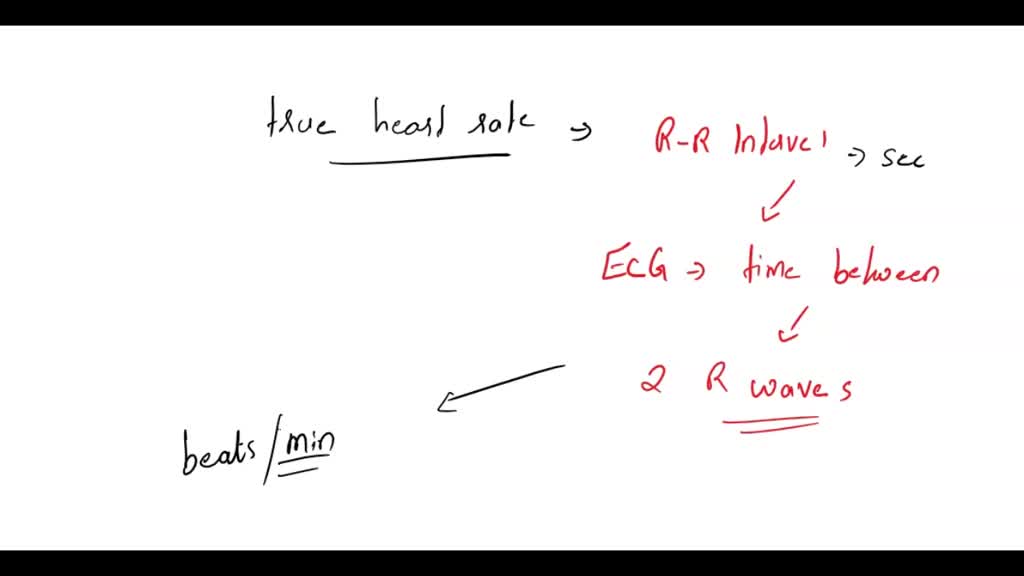 true heart rate → R-R Interval → sec
ECG → time between
2 R waves
beats/min